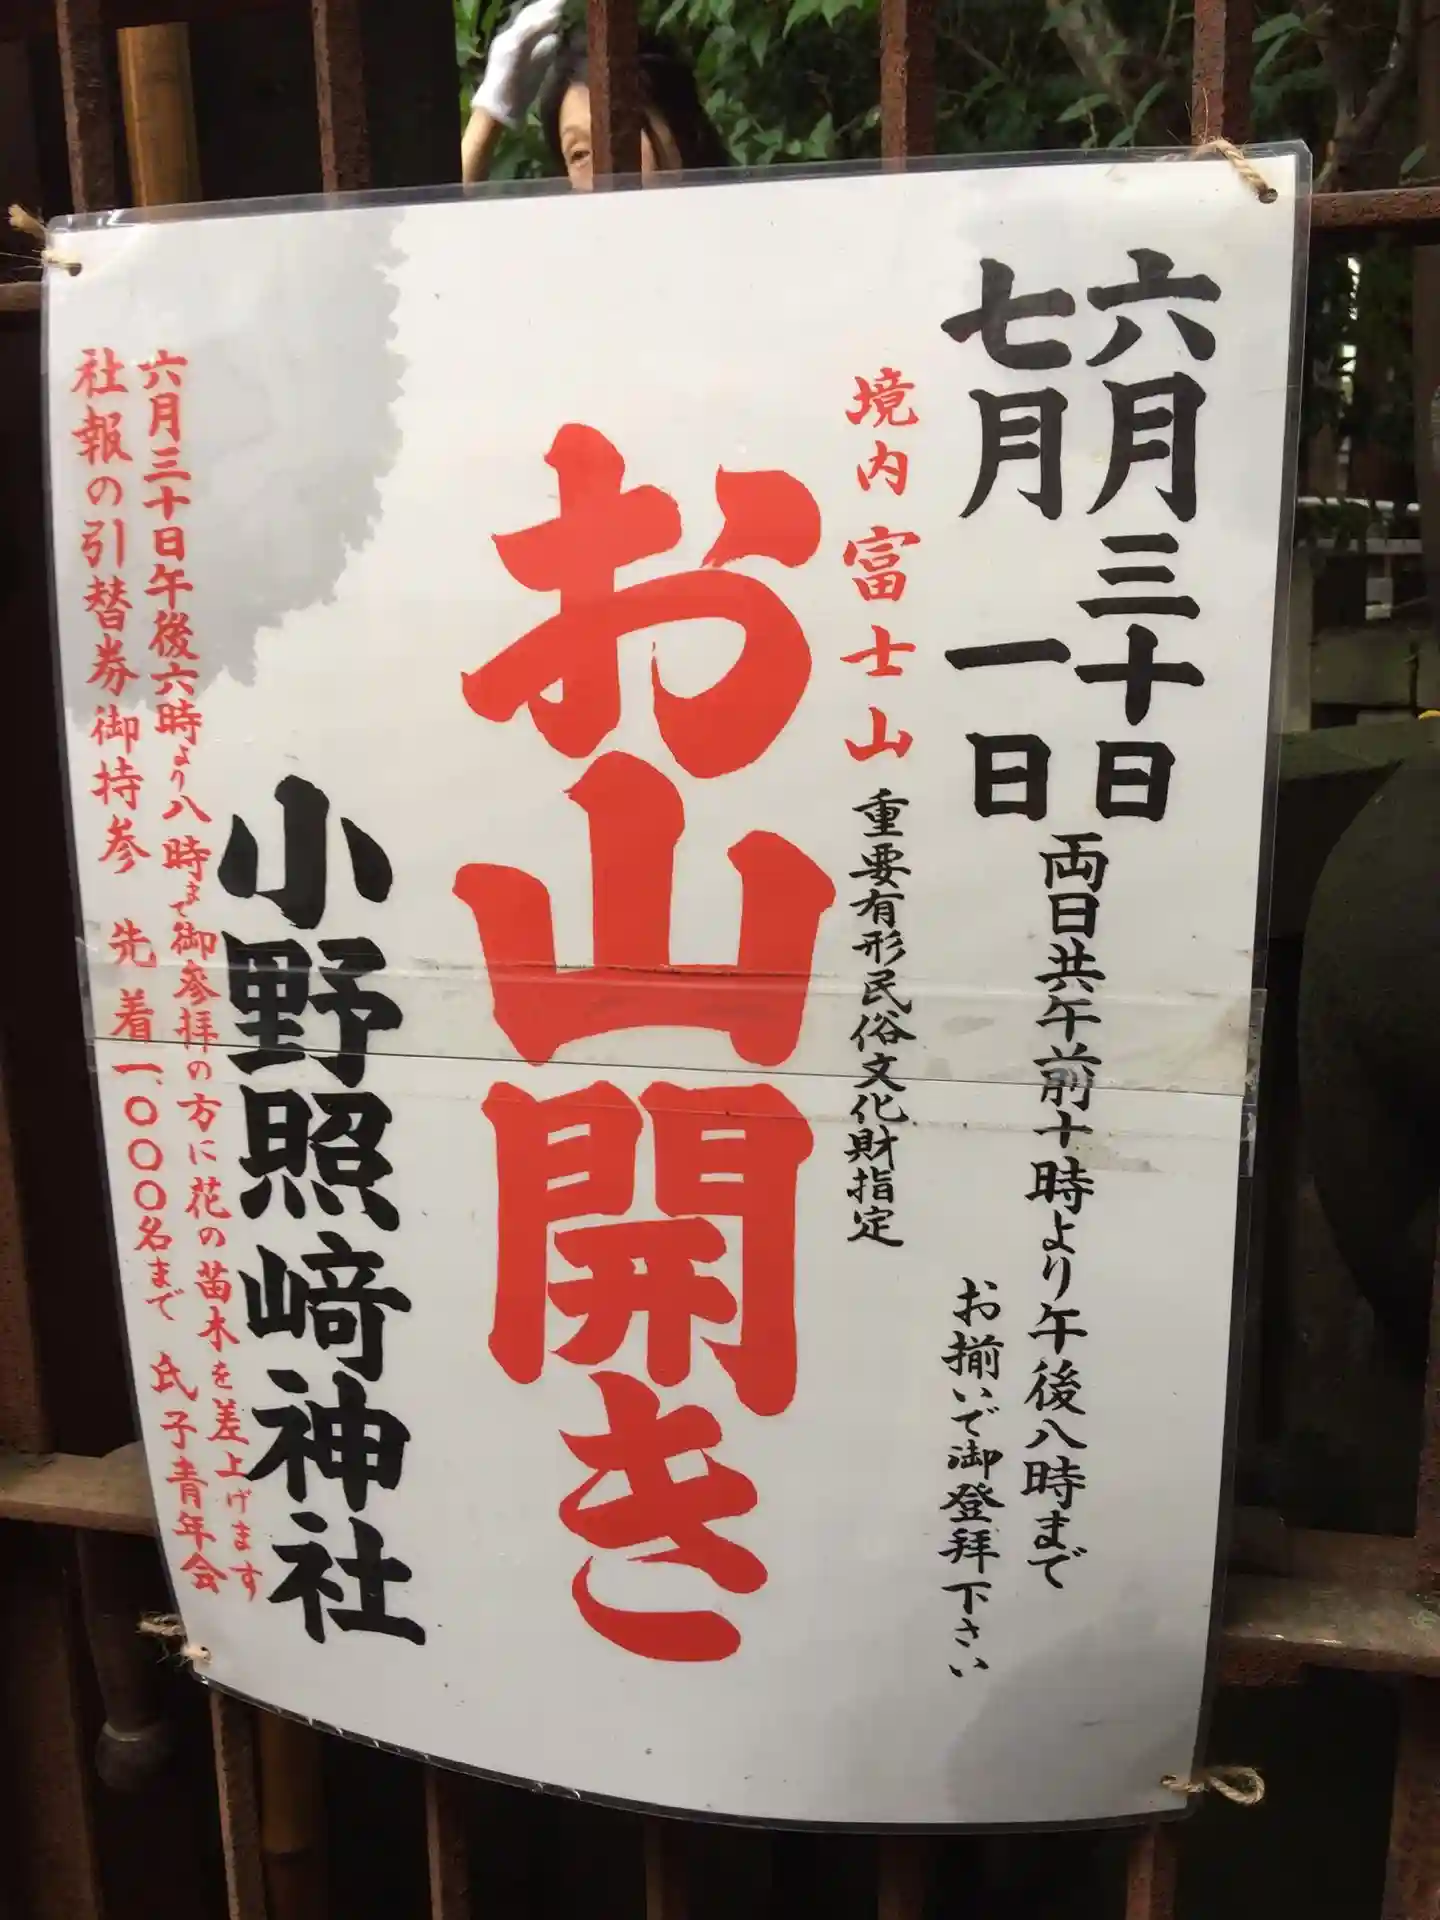 六月三十日
七月一日
両日共午前十時より午後八時まで
お揃いで御登拜下さい
境内富士山
重要有形民俗文化財指定
お山開き
小野照崎神社
六月三十日午後六時より八時まで御参拝の方に花の苗木を差上げます
社報の引替券御持参 先着一、〇〇〇名まで 氏子青年会